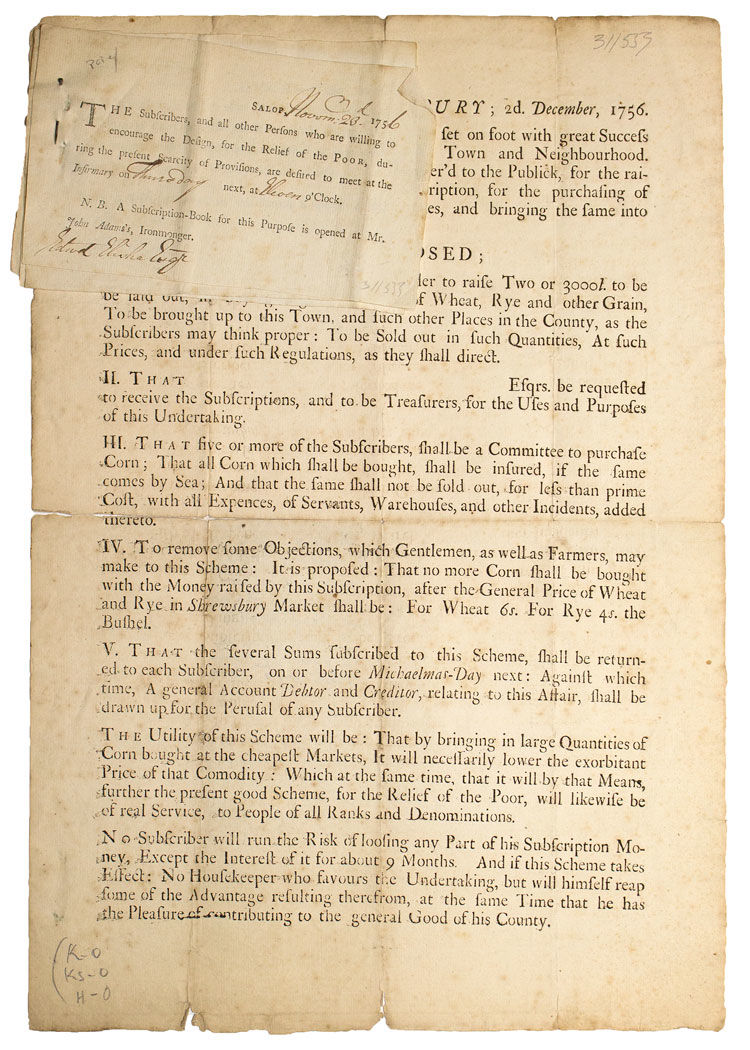 311553
SALOP, Novem. 23d 1756
THE Subſcribers, and all other Perſons who are willing to
encourage the Deſign, for the Relief of the POOR, du-
ring the preſent Scarcity of Proviſions, are deſired to meet at the
Infirmary on Thursday next, at Eleven o'Clock.
N. B. A Subſcription-Book for this Purpoſe is opened at Mr.
John Adams's, Ironmonger.
311553
BURY; 2d. December, 1756.
ſet on foot with great Succeſs
Town and Neighbourhood.
er'd to the Publick, for the rai-
ription, for the purchaſing of
es, and bringing the ſame into
OSED;
der to raiſe Two or 3000l. to be
be laid out, in of Wheat, Rye and other Grain,
To be brought up to this Town, and ſuch other Places in the County, as the
Subſcribers may think proper: To be Sold out in ſuch Quantities, At ſuch
Prices, and under ſuch Regulations, as they ſhall direct.
II. THAT Eſqrs. be requeſted
to receive the Subſcriptions, and to be Treaſurers, for the Uſes and Purpoſes
of this Undertaking.
III. THAT five or more of the Subſcribers, ſhall be a Committee to purchaſe
Corn; That all Corn which ſhall be bought, ſhall be inſured, if the ſame
comes by Sea; And that the ſame ſhall not be ſold out, for leſs than prime
Coſt, with all Expences, of Servants, Warehouſes, and other Incidents, added
thereto.
IV. To remove ſome Objections, which Gentlemen, as well as Farmers, may
make to this Scheme: It is propoſed: That no more Corn ſhall be bought
with the Money raiſed by this Subſcription, after the General Price of Wheat
and Rye in Shrewſbury Market ſhall be: For Wheat 6s. For Rye 4s. the
Buſhel.
V. THAT the ſeveral Sums ſubſcribed to this Scheme, ſhall be return-
ed to each Subſcriber, on or before Michaelmas-Day next: Againſt which
time, A general Account Debtor and Creditor, relating to this Affair, ſhall be
drawn up for the Peruſal of any Subſcriber.
THE Utility of this Scheme will be: That by bringing in large Quantities of
Corn bought at the cheapeſt Markets, It will neceſſarily lower the exorbitant
Price of that Comodity: Which at the ſame time, that it will by that Means,
further the preſent good Scheme, for the Relief of the Poor, will likewiſe be
of real Service, to People of all Ranks and Denominations.
No Subſcriber will run the Risk of looſing any Part of his Subſcription Mo-
ney, Except the Intereſt of it for about 9 Months. And if this Scheme takes
Effect: No Houſekeeper who favours the Undertaking, but will himſelf reap
ſome of the Advantage reſulting therefrom, at the ſame Time that he has
the Pleaſure of contributing to the general Good of his County.
K-0
KS-0
H-0